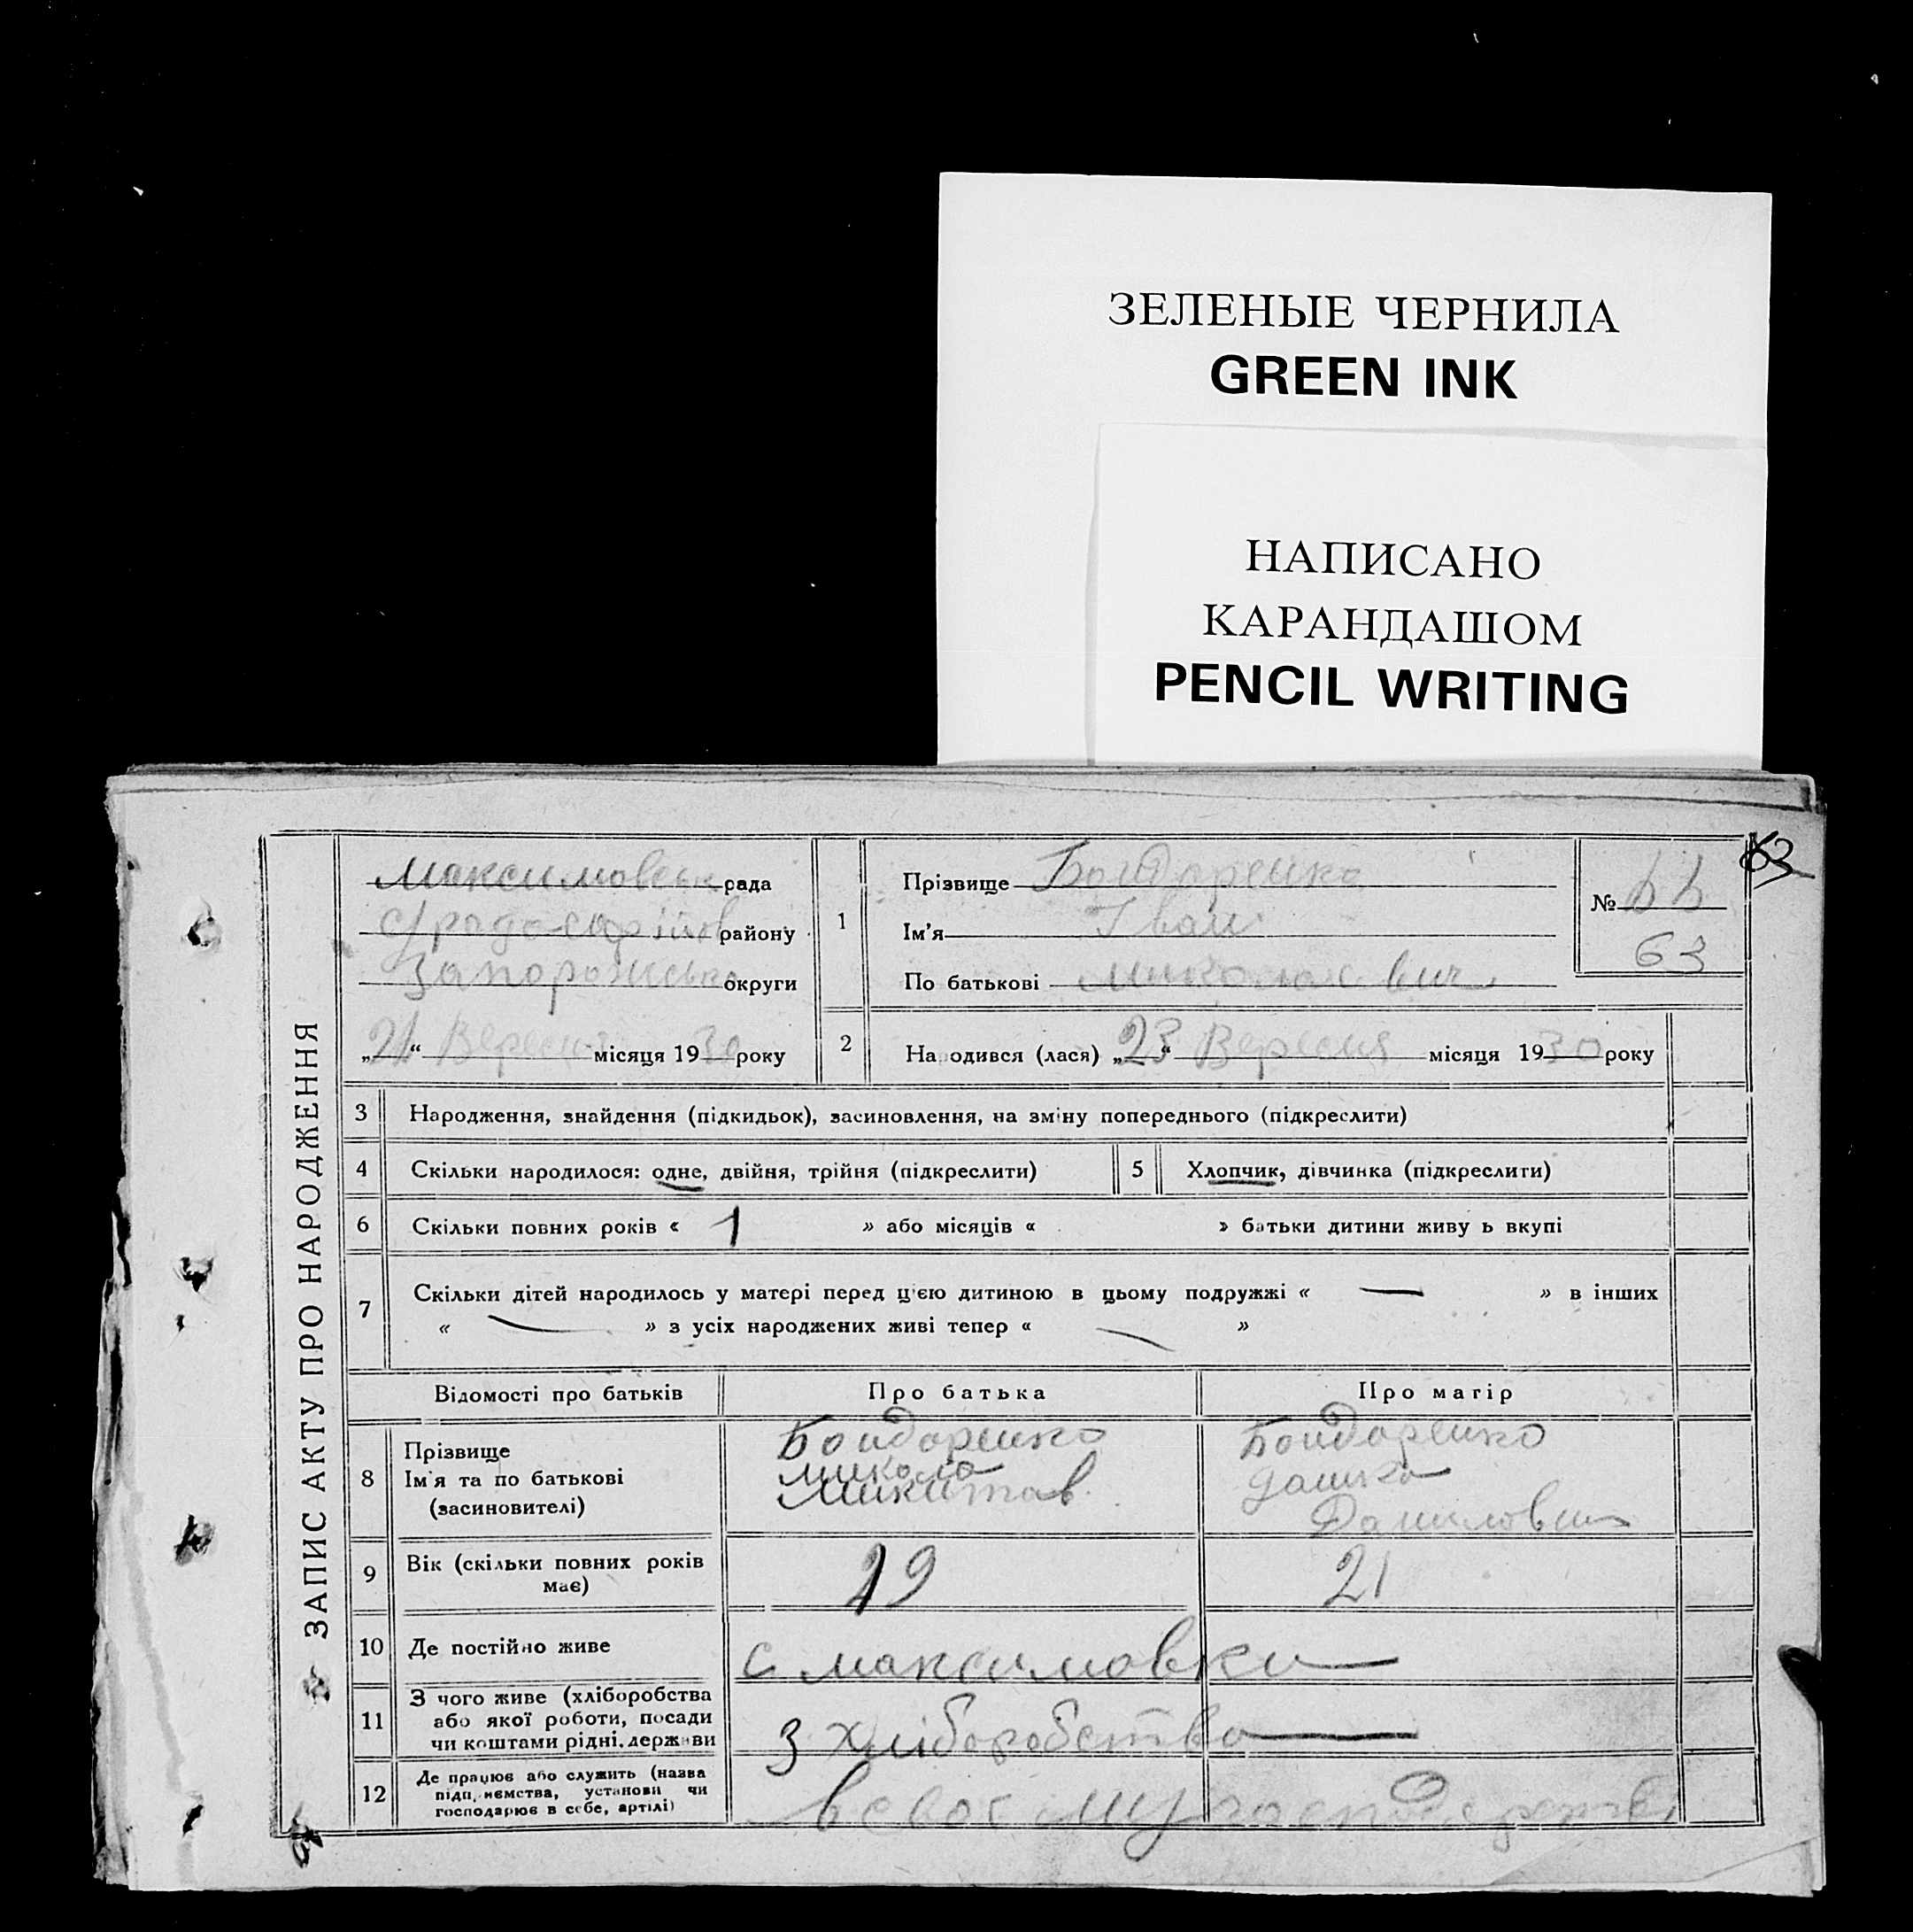 ЗЕЛЕНЫЕ ЧЕРНИЛА
GREEN INK
НАПИСАНО
КАРАНДАШОМ
PENCIL WRITING
63
ЗАПИС АКТУ ПРО НАРОДЖЕННЯ
Максимовськ рада
району
Запорожська округи
„ “ Вересня місяця 1930 року
1
Прізвище Бондаренко
Ім'я Іван
По батькові Миколаєвич
№
63
2
Народився (лася) „23“ Вересня місяця 1930 року
3 Народження, знайдення (підкидьок), засиновлення, на зміну попереднього (підкреслити)
4 Скільки народилося: одне, двійня, трійня (підкреслити) 5 Хлопчик, дівчинка (підкреслити)
6 Скільки повних років « 1 » або місяців « » батьки дитини живу ь вкупі
7 Скільки дітей народилось у матері перед ц'єю дитиною в цьому подружжі « — » в інших
« — » з усіх народжених живі тепер « — »
Відомості про батьків Про батька Про матір
8 Прізвище
Ім'я та по батькові
(засиновителі)
Бондаренко
Микола
Микитов.
Бондаренко
Дашка
Даниловна
9 Вік (скільки повних років
має)
19 21
10 Де постійно живе с. Максимовки
11 З чого живе (хліборобства
або якої роботи, посади
чи коштами рідні, держави
З хліборобства
12 Де працює або служить (назва
підприємства, установи чи
господарює в себе, артілі)
в своєму